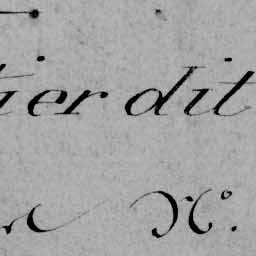 tier dit
N°.